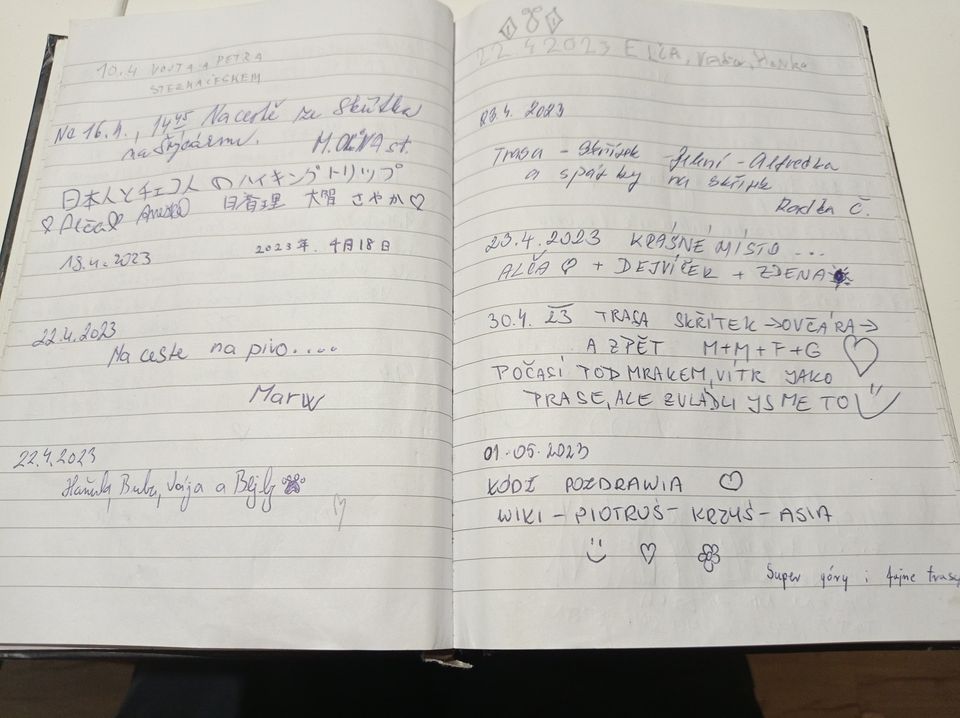 10.4 VOJTA A PETRA
STEZKA ČESKEM
Na 16.4., 14 45 Na cestě ze Skřítka
na Švýcárnu. M. OLIVA st.
日本人とチェコ人のハイキングトリップ
♡ Alča 日 理 大賀 さやか♡
18.4.2023 2023年.4月18日
22.4.2023
Na ceste na pivo....
Marw
22.4.2023
Buba, Vája a
22.4.2023 ELČA, Hanka
23.4. 2023
Trasa – Skřítek – Jelení – Alfredka
a spátky na skřítek
Radka Č.
23.4.2023 KRÁSNÉ MÍSTO ...
ALČA ♡ + DEJVÍČEK + ZDENA
30.4. 23 TRASA SKŘÍTEK → OVČÁRA →
A ZPĚT M+M+F+G ♡
POČASÍ POD MRAKEM, VÍTR JAKO
PRASE, ALE ZVLÁDLI JSME TO
01.05.2023
ŁÓDŹ POZDRAWIA ♡
WIKI – PIOTRUŚ – KRZYŚ – ASIA
Super góry i fajne trasy